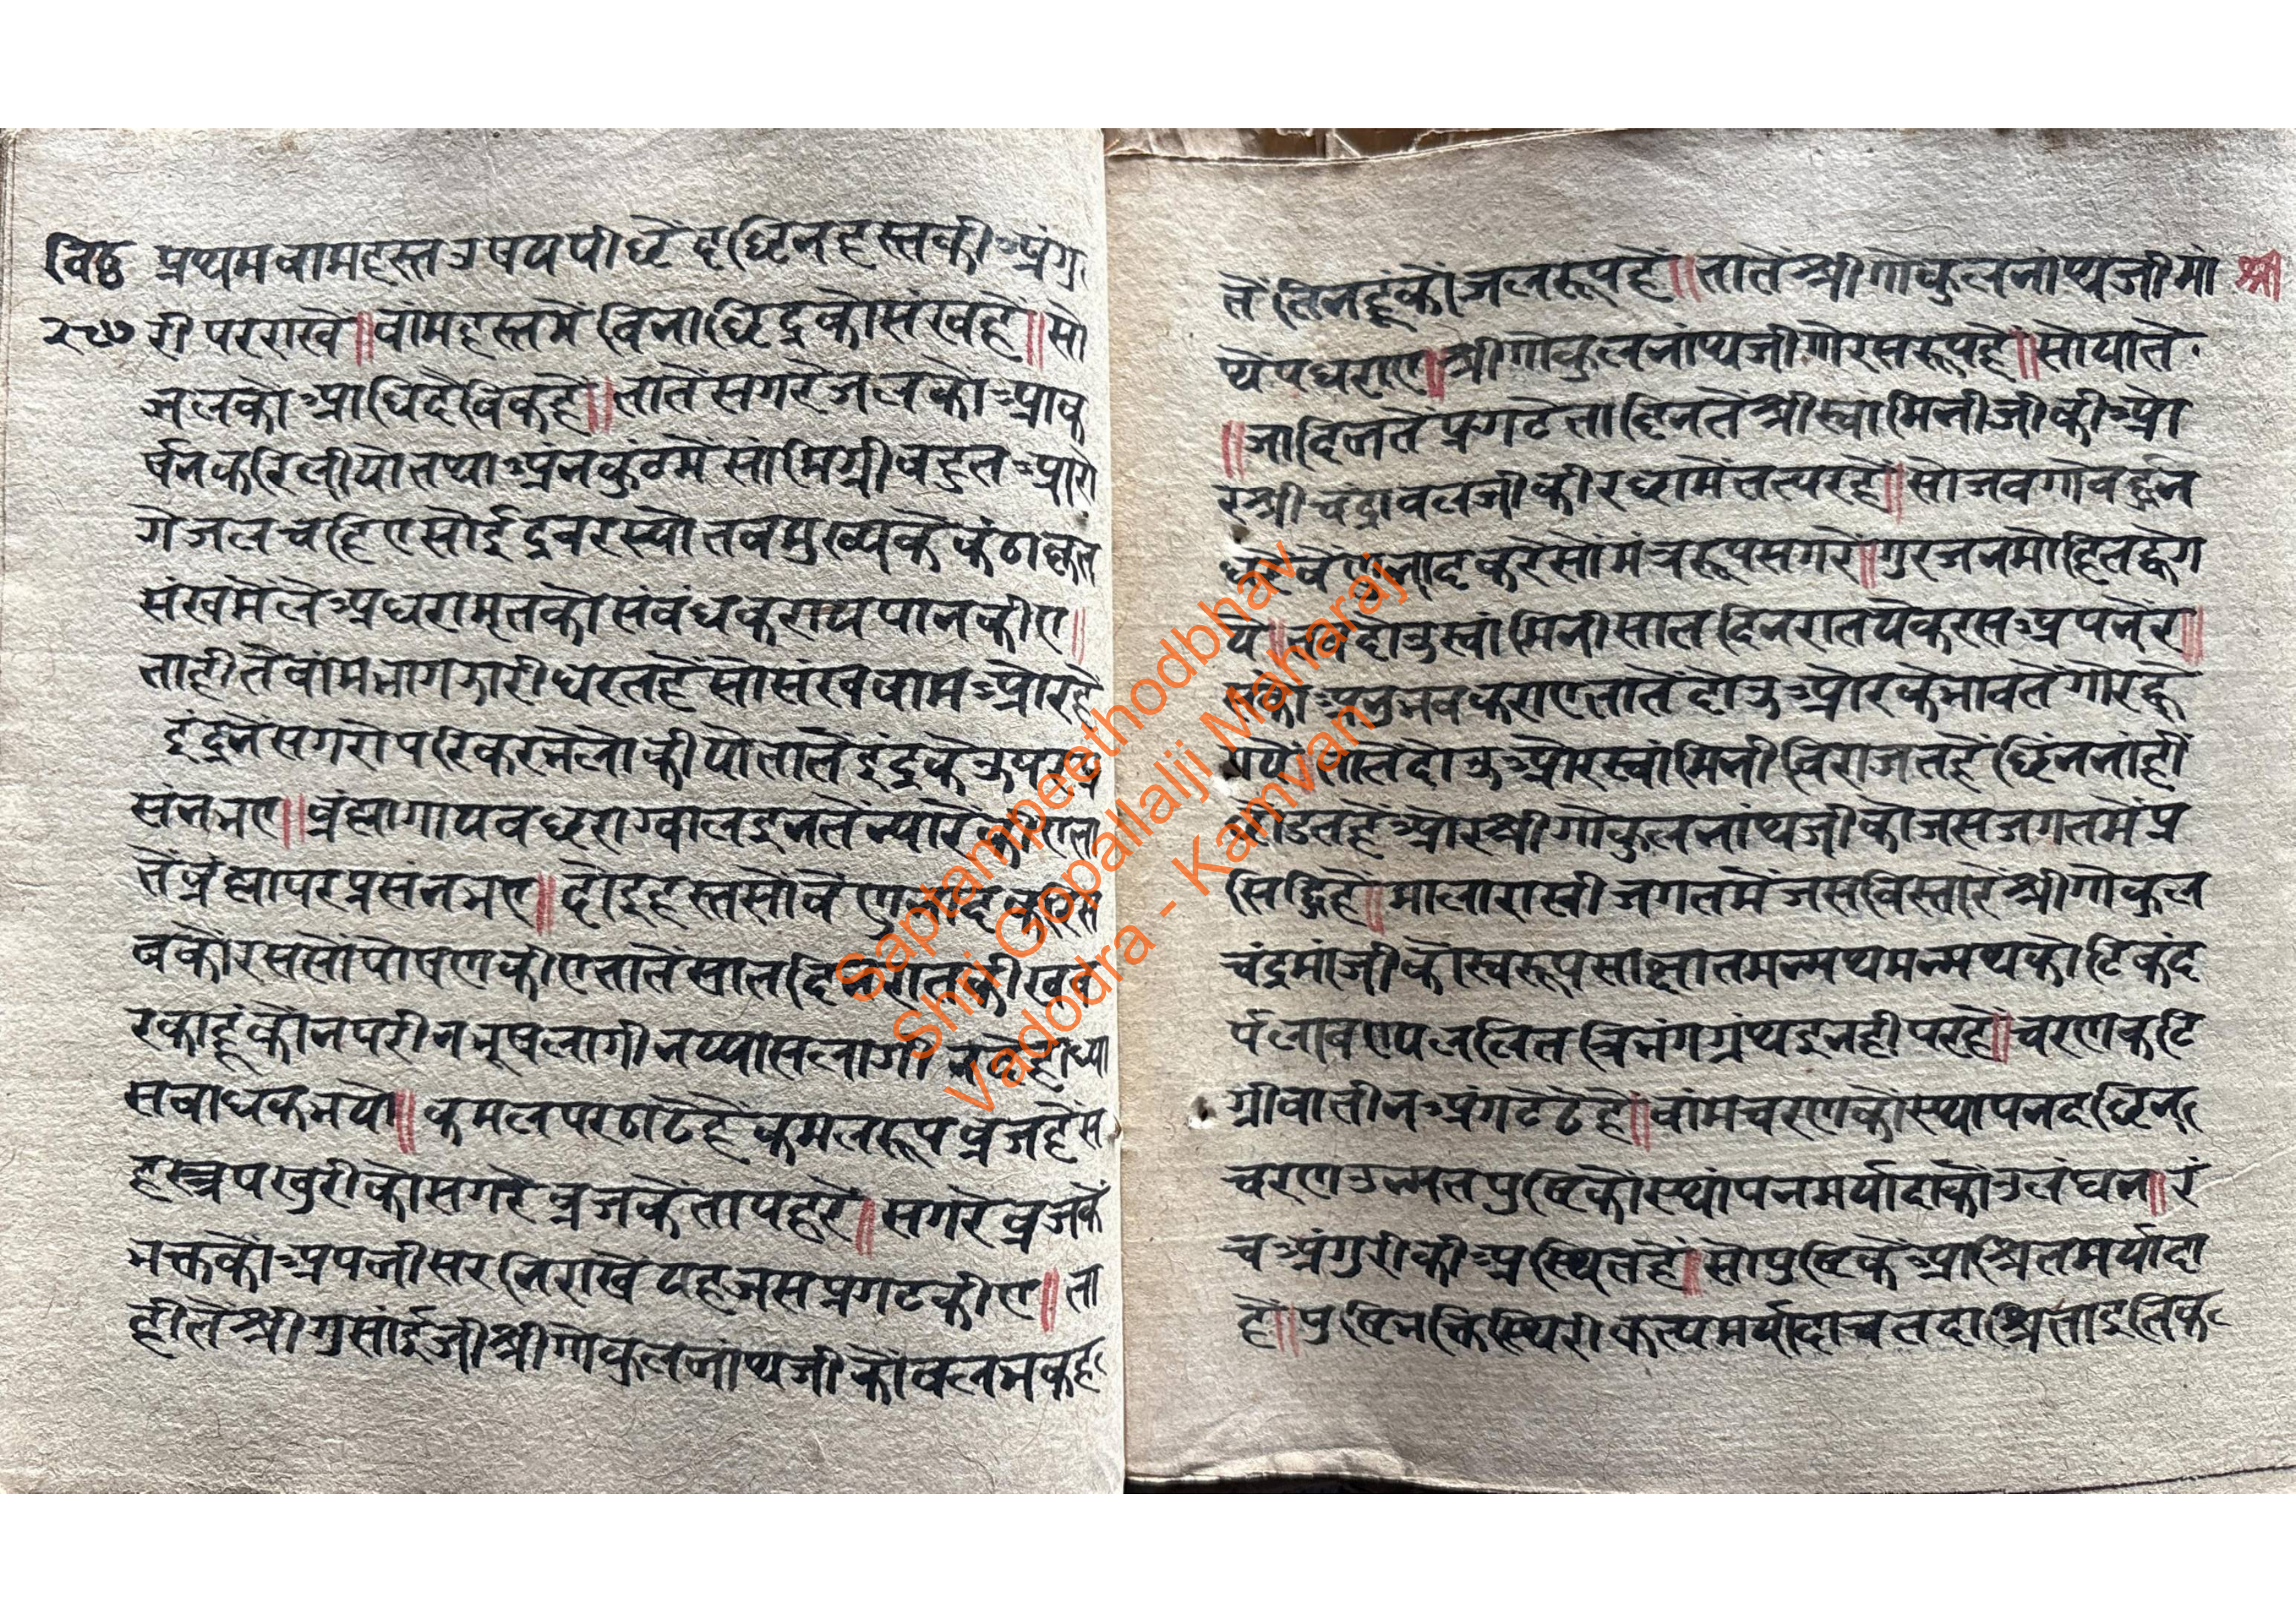 विठ्ठ प्रथम वामहस्त उपय पीछें दछिन हस्तकी अंगु
२८७ री पर राखे ॥ वांमहस्तमें विनाछिद्रको संखहै ॥ सो
जलको आधिदैविकहै ॥ तातें सगरे जलको आक
र्षन करि लीयो तथा अंनकुटमें सांमिग्री बहुत आरो
गे जल चहिए सोई द्रवरस्यो तब मुख्यके कंठाकृत
संखमें ले अधरामृतको संबंध कराय पान कीए ॥
ताहीतें वांमभाग झारी धरतहें सो संख वाम ओरहै
इंद्रनें सगरो परिकर भेलो कीयो तातें इंद्रके उपर प्र
संन भए ॥ ब्रंह्मा गाय वछरा ग्वाल इनतें न्यारे कीए ता
तें ब्रंह्मा पर प्रसंन भए ॥ दोइ हस्तसों वेणुनाद करि स
बको रससों पोषण कीए तातें सात दिन रातकी खब
र काहूंकों न परी न भूष लागी न प्यास लागी
सबाधक भयो ॥ कमल पर ठाढेहें कमलरूप व्रजहें स
हस्त्र पखुरीको सगरे व्रजके ताप हरें ॥ सगरे व्रजके
भक्तकों अपनी सरनि राखे यह जस प्रगट कीए ॥ ता
हीतें श्रीगुसांईजी श्रीगोकुलनांथजीकों वल्लभ कह
तें तिनहूंकों जलरूपहें ॥ तातें श्रीगोकुलनांथजी मां श्री
थें पधराए ॥ श्रीगोकुलनांथजी गोरसरूपहें ॥ सो यातें
॥ जा दिनतें प्रगटे ता दिनतें श्रीस्वांमिनीजीकी ओ
र श्रीचंद्रावलजीकी रक्षामें तत्परहें ॥ सो जब गोवर्द्धन
धरें वेणुनाद करें सो मंत्ररूप सगरे ॥ गुरजन मोहित व्हेग
ये ॥ तब दोउ स्वांमिनी सात दिन रात येकरस अपनें र ॥
सको अनुभव कराए तातें दोउ ओरके भावतें गोर व्हे
गये ॥ तातें दोउ ओर स्वांमिनी विराजतहें छिंन नांहीं
छोडतहें ओर श्रीगोकुलनांथजीको जस जगतमें प्र
सिद्धिहें ॥ माला राखी जगतमें जस विस्तारे श्रीगोकुल
चंद्रमांजीको स्वरूप साक्षात मन्मथमन्मथ कोटि कंद
र्प लावण्य ललित त्रिभंग ग्रंथ इनही परहें ॥ चरण कटि
ग्रीवा तीन अंग टेढेहें ॥ वांम चरणको स्थापन दछिन
चरण उन्मत पुष्टिको स्थांपन मर्यादाको उलंघन ॥ रं
च अंगुरीकी अस्थितहें ॥ सो पुष्टिके आश्रित मर्यादा
हें ॥ पुष्टिभक्ति स्थिरीकृत्य मर्यादाच तदाश्रिता इति